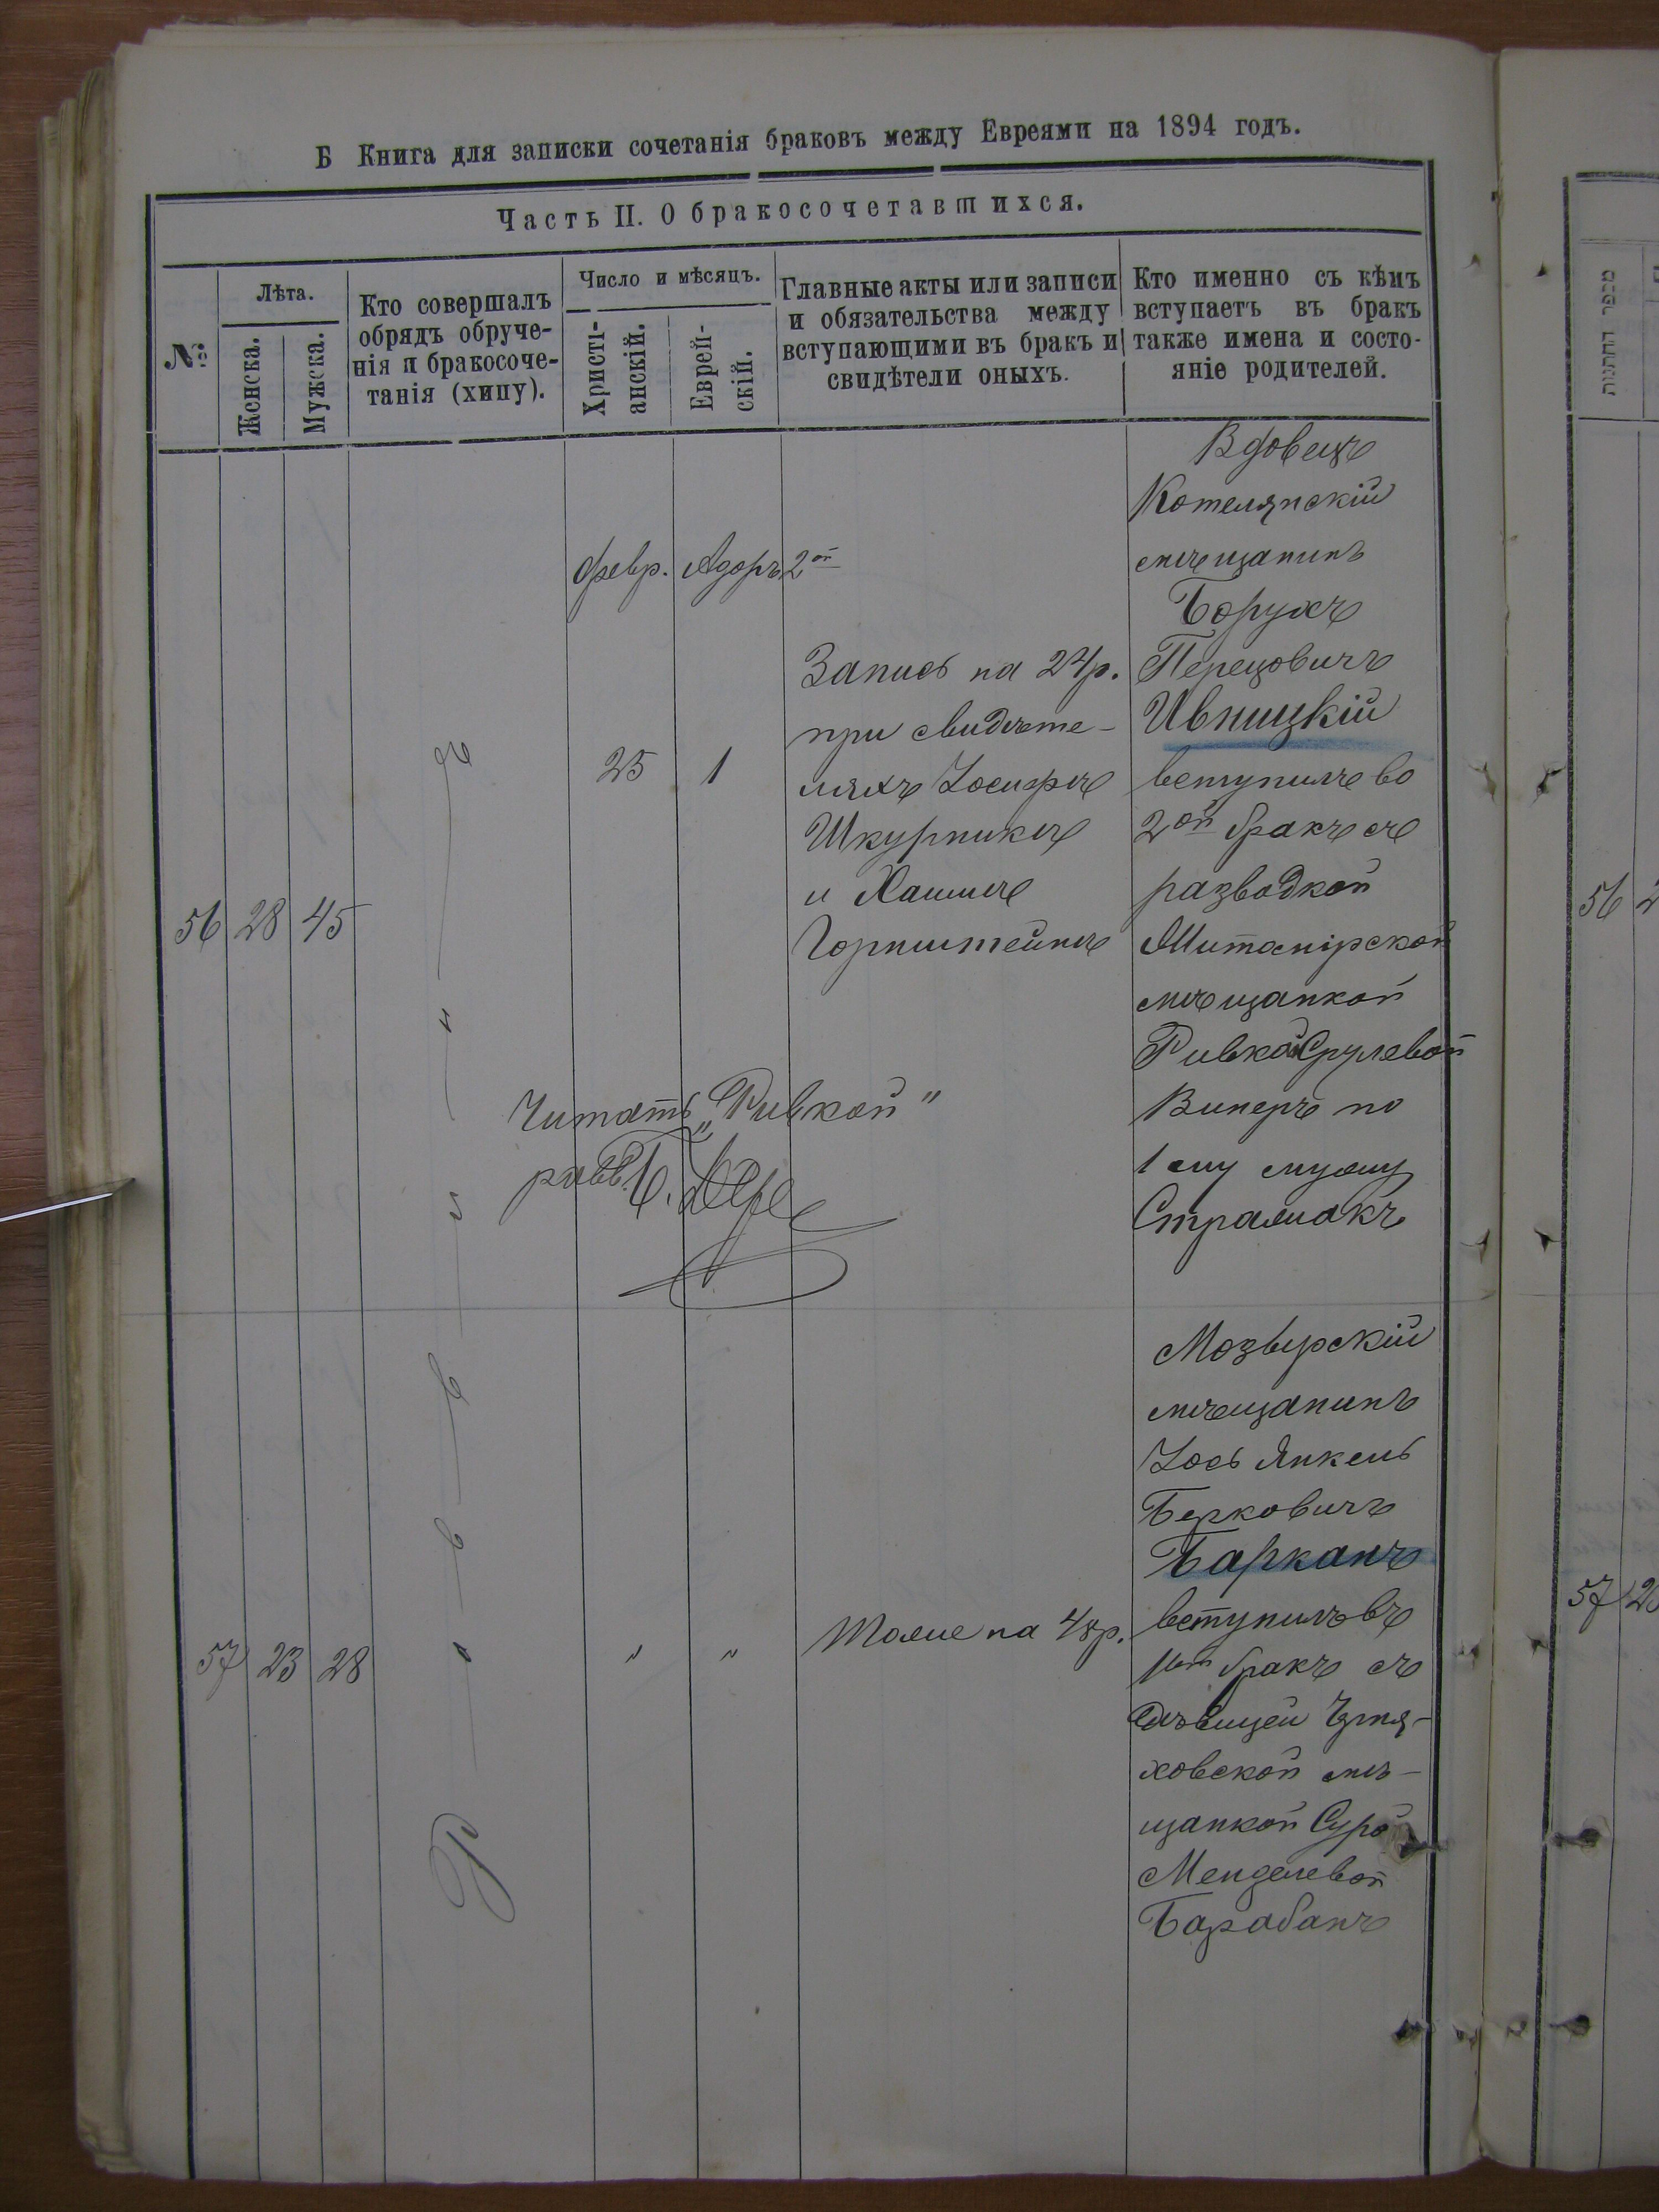 Б Книга для записки сочетанія браковъ между Евреями на 1894 годъ.
Часть II. О бракосочетавшихся.
№
Лѣта.
Женска.
Мужска.
Кто совершалъ
обрядъ обруче-
нія и бракосоче-
танія (хипу).
Число и мѣсяцъ.
Христі-
анскій.
Еврей-
скій.
Главные акты или записи
и обязательства между
вступающими въ бракъ и
свидѣтели оныхъ.
Кто именно съ кѣмъ
вступаетъ въ бракъ
также имена и состо-
яніе родителей.
февр.
Адоръ 2ой
56
28
45
25
1
Запись на 24р.
при свидѣте-
ляхъ Іосифѣ
Шкурникѣ
и Хаимѣ
Горнштейнѣ
Вдовецъ
Котелянскій
мѣщанинъ
Борухъ
Перецовичъ
Ивницкій
вступилъ во
2ой бракъ съ
разводкой
мѣщанкой
Ривкой Срулевой
Винеръ по
1му мужу
Страшакъ
Читать „Ривкой"
равв.
57
23
28
"
"
Тоже на 48р.
Мозырскій
мѣщанинъ
Іось Янкель
Берковичъ
Барканъ
вступилъ въ
1ый бракъ съ
дѣвицей Черня-
ховской мѣ-
щанкой Сурой
Менделевой
Барабанъ
מספר החתנות
56
2
57